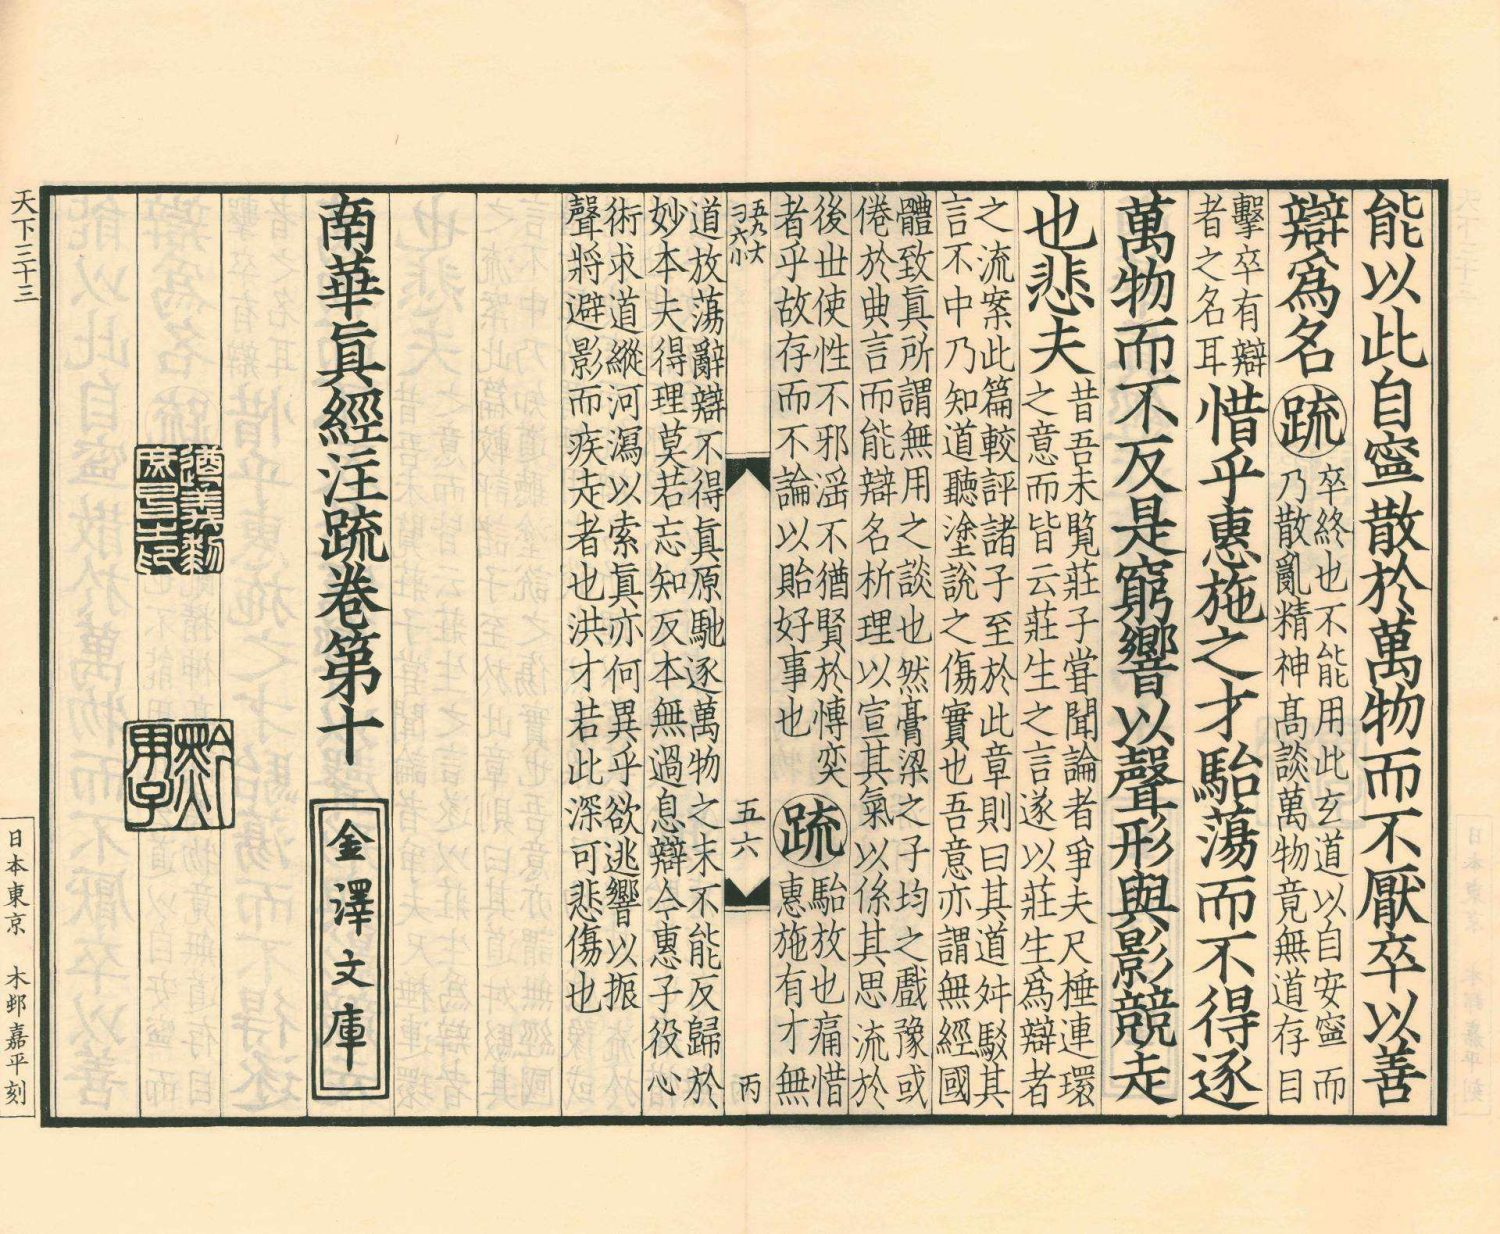 能以此自寧散於萬物而不厭卒以善
辯爲名
疏
卒終也不能用此玄道以自安寧而
乃散亂精神高談萬物竟無道存目
擊卒有辯
者之名耳
惜乎惠施之才駘蕩而不得逐
萬物而不反是窮響以聲形與影競走
也悲夫
昔吾未覽莊子嘗聞論者爭夫尺棰連環
之意而皆云莊生之言遂以莊生爲辯者
之流案此篇較評諸子至於此章則曰其道舛駁其
言不中乃知道聽塗說之傷實也吾意亦謂無經國
體致真所謂無用之談也然膏粱之子均之戲豫或
倦於典言而能辯名析理以宣其氣以係其思流於
後世使性不邪淫不猶賢於博奕
者乎故存而不論以貽好事也
疏
駘放也痛惜
惠施有才無
五九大
刁六小
五六
丙
道放蕩辭辯不得眞原馳逐萬物之末不能反歸於
妙本夫得理莫若忘知反本無過息辯今惠子役心
術求道縱河瀉以索眞亦何異乎欲逃響以振
聲將避影而疾走者也洪才若此深可悲傷也
南華眞經注疏卷第十
金澤文庫
遵義黎
庶昌之印
黔男子
天下三十三
日本東京 木邨嘉平刻